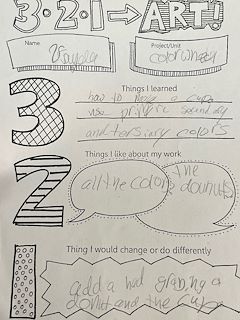 3·2·1→ART!
Name
Project/Unit
colorwheel
3
Things I learned
how to make a cupe
use
and tersiary colors
2
Things I like about my work
all the colors
the dounuts
1
Thing I would change or do differently
add a hand grabing a
donut and the cupe